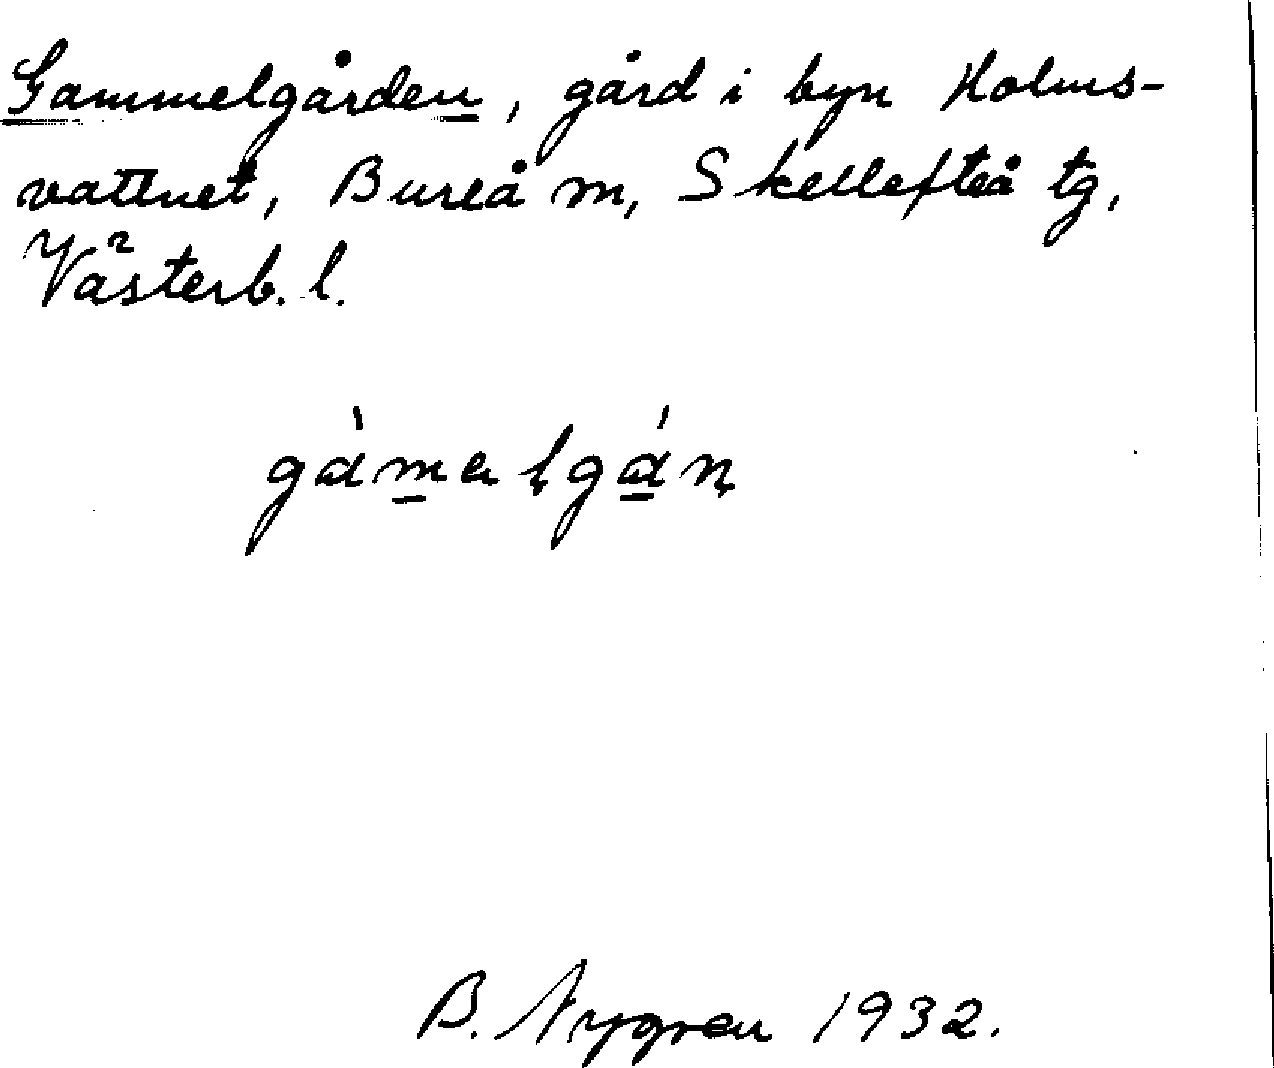 Gammelgården, gård i byn Holms-
vattnet, Bureå m, Skellefteå tg,
Västerb. l.
gàmalgán
B. Nygren 1932.